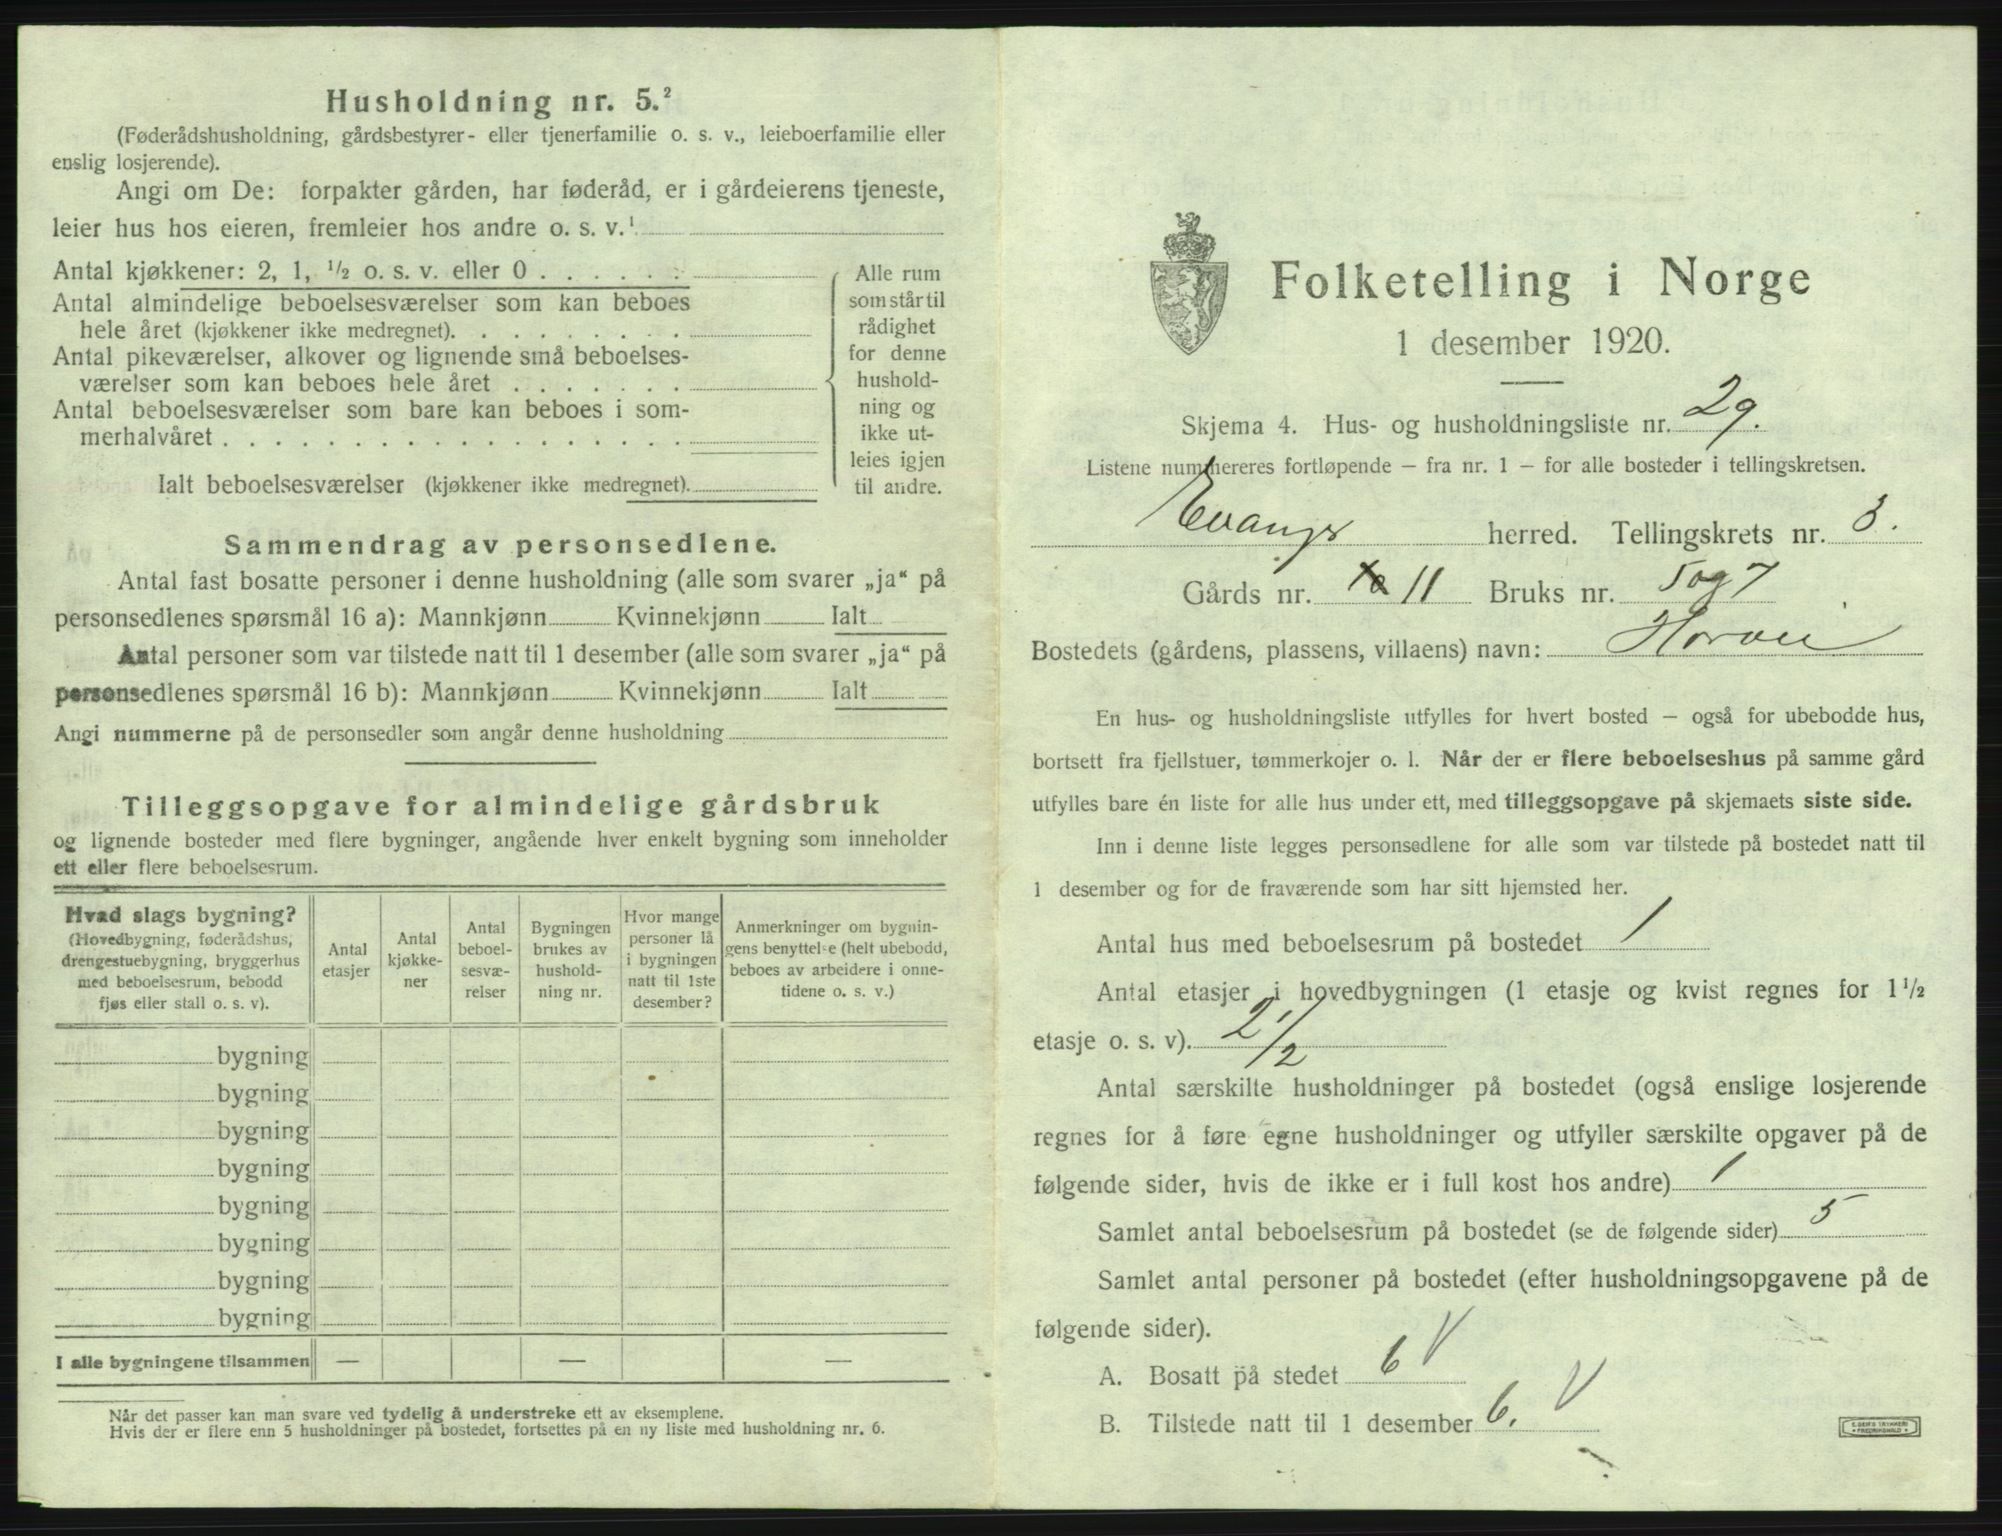 Husholdning nr. 5.²
(Føderådshusholdning, gårdsbestyrer- eller tjenerfamilie o. s. v., leieboerfamilie eller
enslig losjerende).
Angi om De: forpakter gården, har føderåd, er i gårdeierens tjeneste,
leier hus hos eieren, fremleier hos andre o. s. v.¹
Antal kjøkkener: 2, 1, ½ o. s. v. eller 0 . . . . . .
Antal almindelige beboelsesværelser som kan beboes
hele året (kjøkkener ikke medregnet). . . . . . . . .
Antal pikeværelser, alkover og lignende små beboelses-
værelser som kan beboes hele året . . . . . . .
Antal beboelsesværelser som bare kan beboes i som-
merhalvåret . . . . . . . . . . . . . . . . . .
Ialt beboelsesværelser (kjøkkener ikke medregnet).
Alle rum
som står til
rådighet
for denne
hushold-
ning og
ikke ut-
leies igjen
til andre.
Sammendrag av personsedlene.
Antal fast bosatte personer i denne husholdning (alle som svarer „ja“ på
personsedlenes spørsmål 16 a): Mannkjønn Kvinnekjønn Ialt
Antal personer som var tilstede natt til 1 desember (alle som svarer „ja“ på
personsedlenes spørsmål 16 b): Mannkjønn Kvinnekjønn Ialt
Angi nummerne på de personsedler som angår denne husholdning
Tilleggsopgave for almindelige gårdsbruk
og lignende bosteder med flere bygninger, angående hver enkelt bygning som inneholder
ett eller flere beboelsesrum.
Hvad slags bygning?
(Hovedbygning, føderådshus,
drengestuebygning, bryggerhus
med beboelsesrum, bebodd
fjøs eller stall o. s. v).
Antal
etasjer
Antal
kjøkke-
ner
Antal
beboel-
sesvæ-
relser
Bygningen
brukes av
hushold-
ning nr.
Hvor mange
personer lå
i bygningen
natt til 1ste
desember?
Anmerkninger om bygnin-
gens benyttelse (helt ubebodd,
beboes av arbeidere i onne-
tidene o. s. v.)
bygning
bygning
bygning
bygning
bygning
bygning
bygning
bygning
I alle bygningene tilsammen — — —
Når det passer kan man svare ved tydelig å understreke ett av eksemplene.
Hvis der er flere enn 5 husholdninger på bostedet, fortsettes på en ny liste med husholdning nr. 6.
Folketelling i Norge
1 desember 1920.
Skjema 4. Hus- og husholdningsliste nr. 29.
Listene nummereres fortløpende – fra nr. 1 – for alle bosteder i tellingskretsen.
Evanger herred. Tellingskrets nr. 3.
Gårds nr. 10 11 Bruks nr. 5 og 7
Bostedets (gårdens, plassens, villaens) navn: Horvei
En hus- og husholdningsliste utfylles for hvert bosted – også for ubebodde hus,
bortsett fra fjellstuer, tømmerkojer o. l. Når der er flere beboelseshus på samme gård
utfylles bare én liste for alle hus under ett, med tilleggsopgave på skjemaets siste side.
Inn i denne liste legges personsedlene for alle som var tilstede på bostedet natt til
1 desember og for de fraværende som har sitt hjemsted her.
Antal hus med beboelsesrum på bostedet 1
Antal etasjer i hovedbygningen (1 etasje og kvist regnes for 1½
etasje o. s. v). 2½
Antal særskilte husholdninger på bostedet (også enslige losjerende
regnes for å føre egne husholdninger og utfyller særskilte opgaver på de
følgende sider, hvis de ikke er i full kost hos andre) 1
Samlet antal beboelsesrum på bostedet (se de følgende sider) 5
Samlet antal personer på bostedet (efter husholdningsopgavene på de
følgende sider).
A. Bosatt på stedet 6 V
B. Tilstede natt til 1 desember 6. V